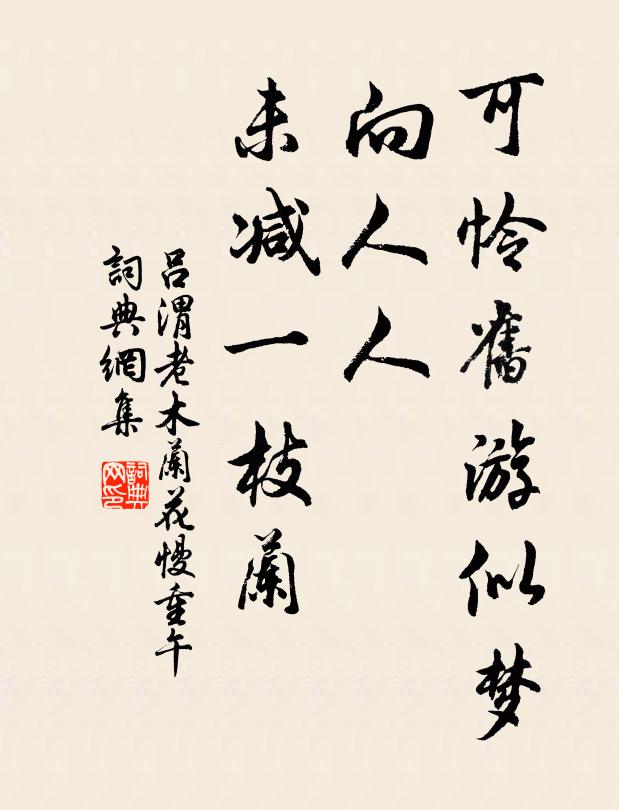 可怜舊游似梦
向人人
未减一枝蘭
吕渭老木蘭花慢重午
詞典網集
詞典网印